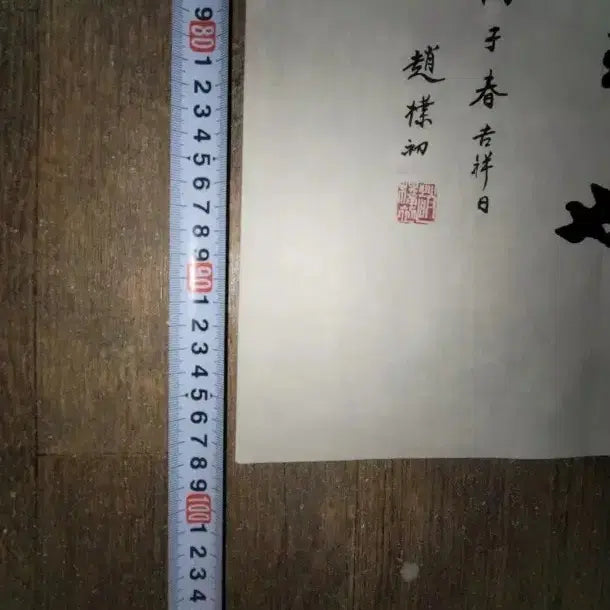 9 80 1 2 3 4 5 6 7 8 9 90 1 2 3 4 5 6 7 8 9 100 1 2 3 4
子春吉祥日
趙樸初